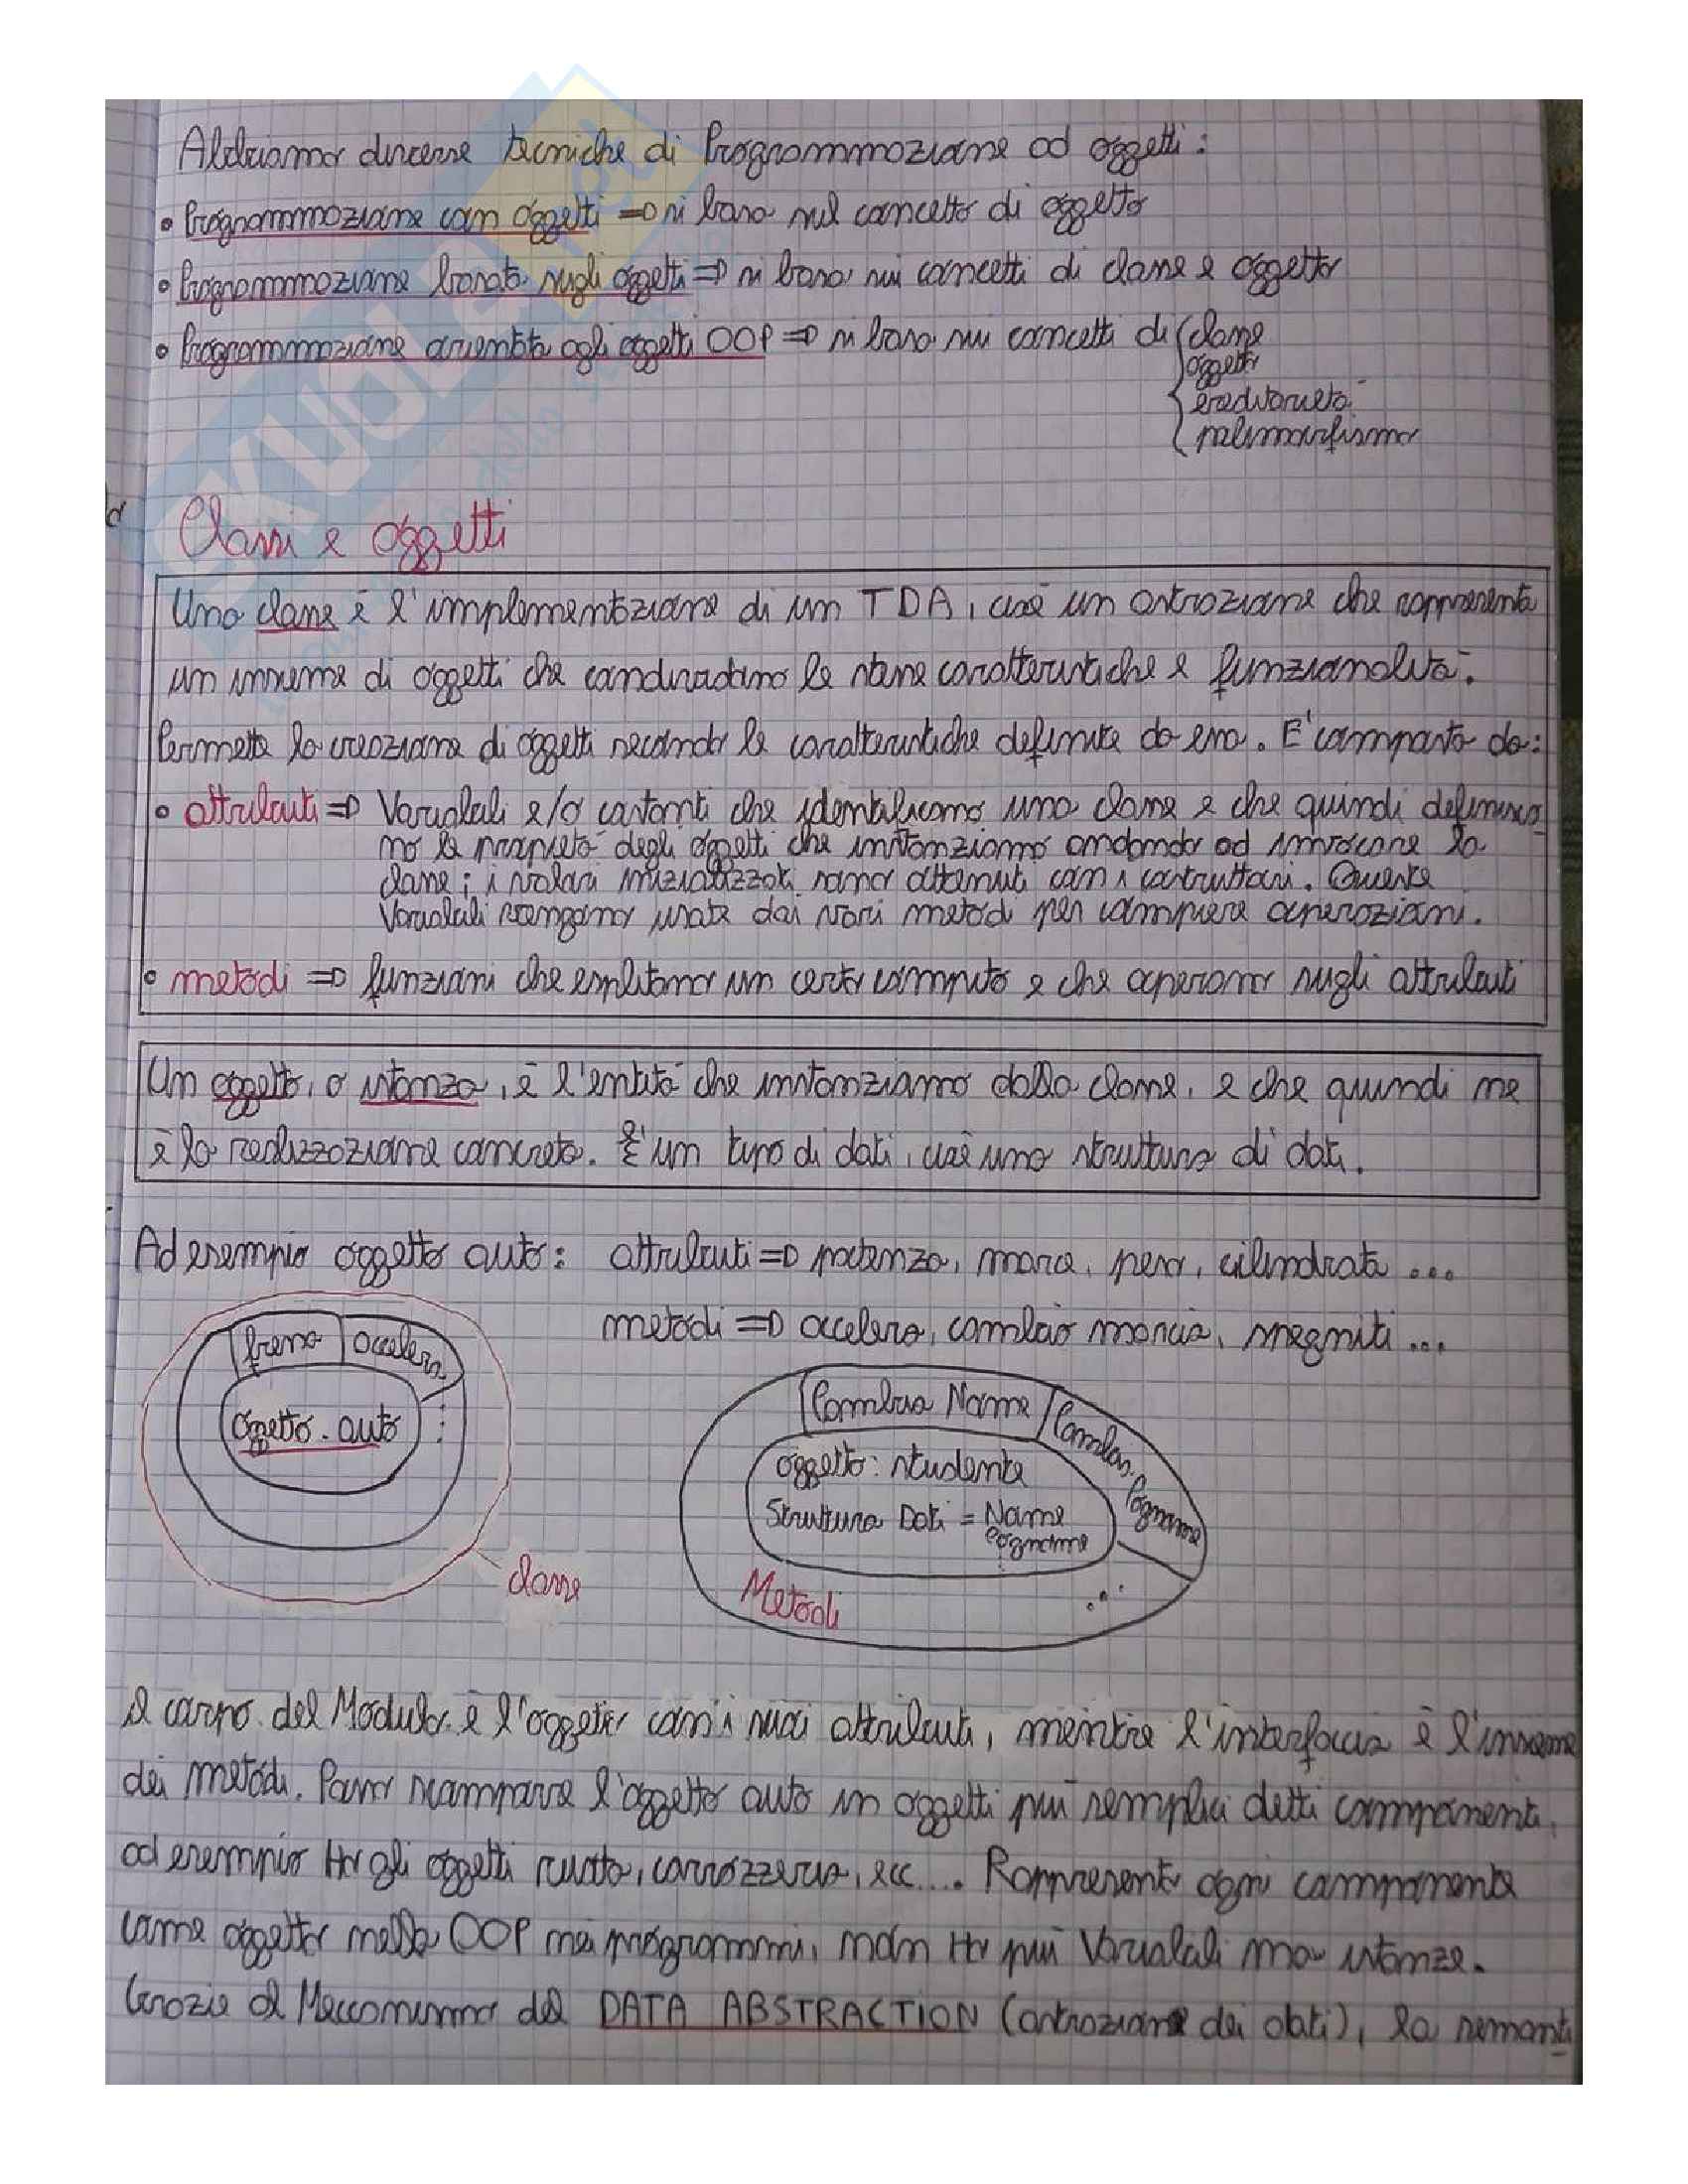 Abbiamo diverse tecniche di Programmazione ad oggetti:
• Programmazione con oggetti => si basa sul concetto di oggetto
• Programmazione basata sugli oggetti => si basa sui concetti di classe e oggetto
• Programmazione orientata agli oggetti OOP => si basa sui concetti di { classe
oggetto
ereditarietà
polimorfismo
Classi e oggetti
Una classe è l'implementazione di un TDA, cioè un astrazione che rappresenta
un insieme di oggetti che condividono le stesse caratteristiche e funzionalità.
Permette la creazione di oggetti secondo le caratteristiche definite da essa. E' composta da:
• attributi => Variabili e/o costanti che identificano una classe e che quindi definisco_
no le proprietà degli oggetti che instanziamo andando ad invocare la
classe; i valori inizializzati sono ottenuti con i costruttori. Queste
Variabili vengono usate dai vari metodi per compiere operazioni.
• metodi => funzioni che esplitano un certo computo e che operano sugli attributi
Un oggetto, o istanza, è l'entità che instanziamo dalla classe, e che quindi ne
è la realizzazione concreta. E' un tipo di dati, cioè una struttura di dati.
Ad esempio oggetto auto: attributi => potenza, marce, peso, cilindrata ...
metodi => accelera, cambio marcia, spegniti ...
freno
accelera
oggetto. auto
classe
Cambia Nome
Cambia Cognome
oggetto: studente
Struttura Dati = Nome
Cognome
Metodi
Il corpo del Modulo è l'oggetto con i suoi attributi, mentre l'interfaccia è l'insieme
dei metodi. Posso scomporre l'oggetto auto in oggetti più semplici detti componenti,
ad esempio Ho gli oggetti ruota, carrozzeria, ecc.... Rappresento ogni componente
come oggetto nella OOP nei programmi, non Ho più Variabili ma istanze.
Grazie al Meccanismo del DATA ABSTRACTION (astrazione dei dati), la semanti_